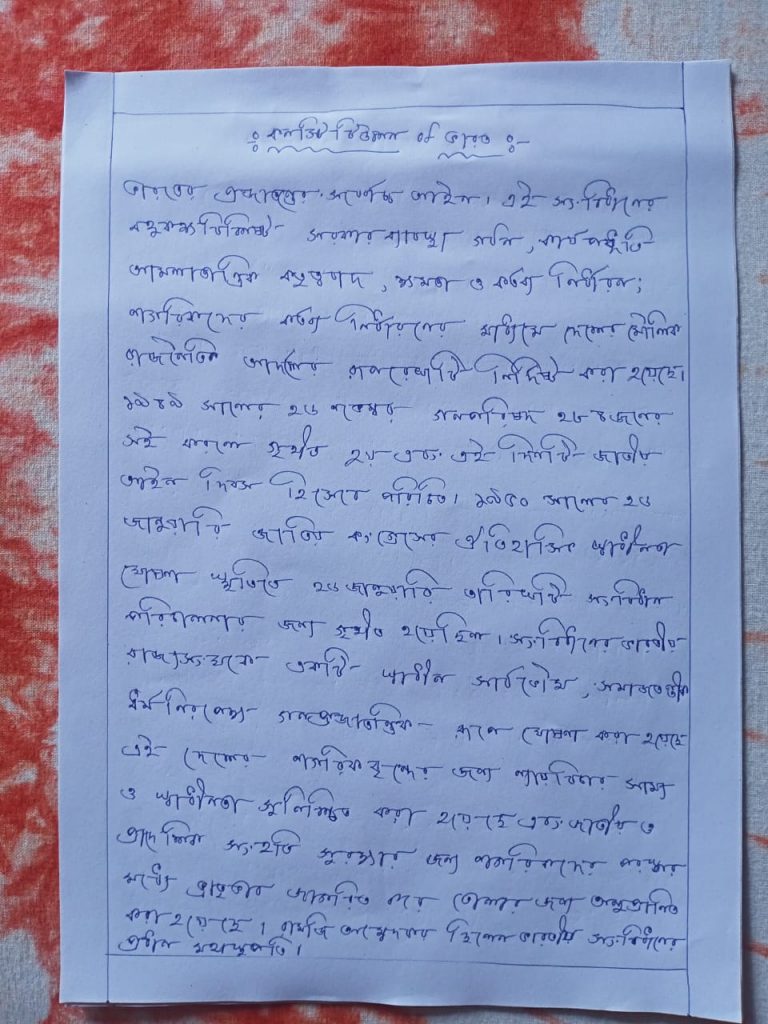 :কনস্টিটিউশন of ভারত :-
ভারতের প্রজাতন্ত্রের সর্বোচ্চ আইন। এই সংবিধানের
বহুকক্ষবিশিষ্ট সরকারব্যবস্থা গঠন, কার্যপদ্ধতি
আমলাতান্ত্রিক, ক্ষমতা ও কর্তব্য নির্ধারণ;
নাগরিকদের কর্তব্য নির্ধারণের মাধ্যমে দেশের মৌলিক
রাজনৈতিক আদর্শের রূপরেখাটি নির্দিষ্ট করা হয়েছে।
১৯৪৯ সালের ২৬ নভেম্বর গণপরিষদ ২৮৪জনের
সই করলে গৃহীত হয় এবং এই দিনটি জাতীয়
আইন দিবস হিসেবে পরিচিত। ১৯৫০ সালের ২৬
জানুয়ারি জাতীয় কংগ্রেসের ঐতিহাসিক স্বাধীনতা
ঘোষণা স্মৃতিতে ২৬জানুয়ারি তারিখটি সংবিধান
পরিচালনার জন্য গৃহীত হয়েছিল। সংবিধানের ভারতীয়
রাজ্যসংঘকে একটি স্বাধীন সার্বভৌম, সমাজতান্ত্রিক
ধর্মনিরপেক্ষ গণপ্রজাতান্ত্রিক রূপে ঘোষণা করা হয়েছে
এই দেশের নাগরিকবৃন্দের জন্য ন্যায়বিচার সাম্য
ও স্বাধীনতা সুনিশ্চিত করা হয়েছে এবং জাতীয় ও
সংহতি সুরক্ষার জন্য নাগরিকদের পরস্পর
মধ্যে ভ্রাতৃভাব জাগরিত করে তোলার জন্য অনুপ্রাণিত
করা হয়েছে। আম্বেদকর ছিলেন ভারতীয় সংবিধানের
প্রধান স্থপতি।